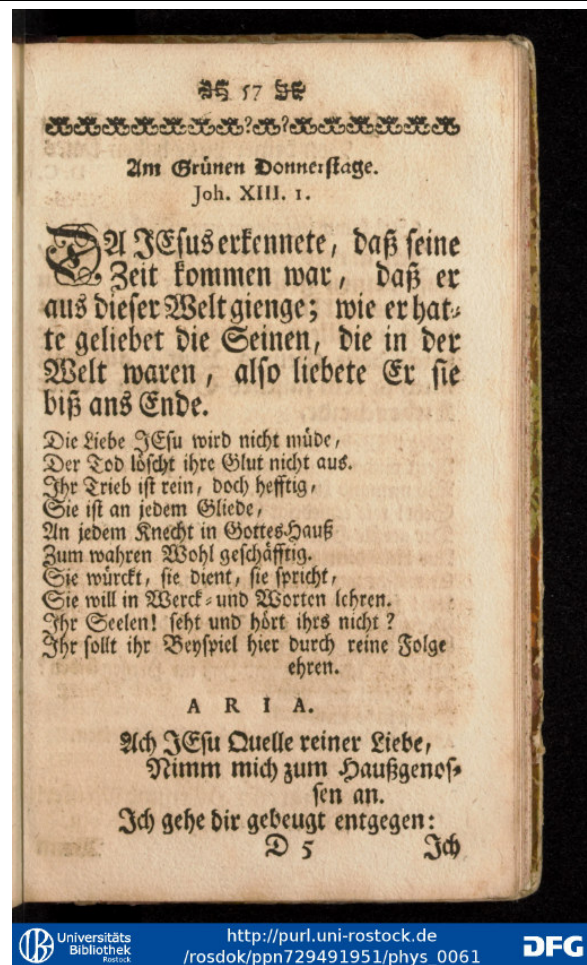 57
Am Grünen Donnerstage.
Joh. XIII. 1.
DA JEsus erkennete, daß seine
Zeit kommen war, daß er
aus dieser Welt gienge; wie er hat-
te geliebet die Seinen, die in der
Welt waren, also liebete Er sie
biß ans Ende.
Die Liebe JEsu wird nicht müde,
Der Tod löscht ihre Glut nicht aus.
Ihr Trieb ist rein, doch hefftig,
Sie ist an jedem Gliede,
An jedem Knecht in Gottes-Hauß
Zum wahren Wohl geschäfftig.
Sie würckt, sie dient, sie spricht,
Sie will in Werck- und Worten lehren.
Ihr Seelen! seht und hört ihrs nicht?
Ihr sollt ihr Beyspiel hier durch reine Folge
ehren.
ARIA.
Ach JEsu Quelle reiner Liebe,
Nimm mich zum Haußgenos-
sen an.
Ich gehe dir gebeugt entgegen:
D 5 Ich
Universitäts
Bibliothek
Rostock
http://purl.uni-rostock.de
/rosdok/ppn729491951/phys_0061
DFG